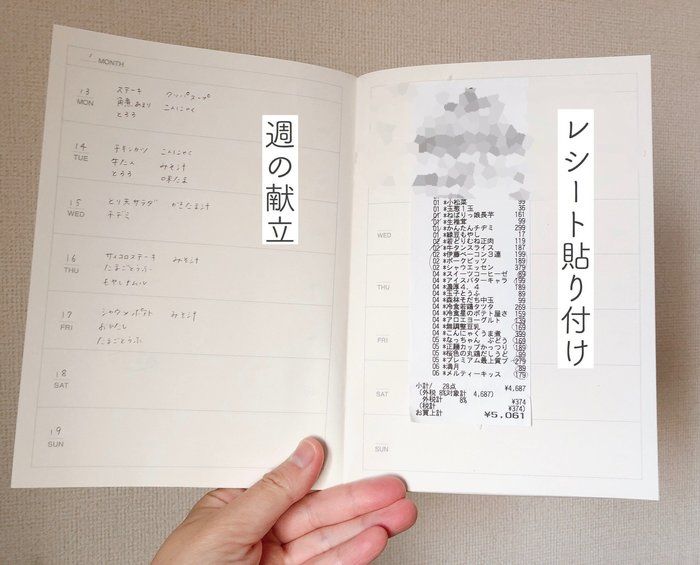 MONTH
13
MON
ステーキ
角煮あまり
とろろ
クッパスープ
こんにゃく
14
TUE
チキンカツ
牛たん
とろろ
こんにゃく
みそ汁
味たま
15
WED
とり天サラダ
チヂミ
かきたま汁
16
THU
サイコロステーキ
たまごとうふ
もやしナムル
みそ汁
17
FRI
シャウ
ポテト
おひたし
たまごとうふ
みそ汁
18
SAT
19
SUN
週の献立
WED
THU
FRI
SAT
SUN
01 *小松菜 99
01 *玉葱1玉 36
01 *ねばりっ娘長芋 161
01 *生椎茸 99
01 *かんたんチヂミ 299
01 *緑豆もやし 17
02 *若どりむね正肉 119
02 *牛タンスライス 187
02 *伊藤ベーコン3連 199
02 *ポークビッツ 189
02 *シャウエッセン 379
04 *スイーツコーヒーゼ 69
04 *アイスバターキャラ 199
04 *濃厚4.4 189
04 *玉子とうふ 89
04 *森林そだち中玉 99
04 *冷食若鶏タツタ 269
04 *冷食星のポテト屋さ 159
04 *アロエヨーグルト 139
04 *無調整豆乳 169
04 *こんにゃくうま煮 399
05 *なっちゃん ぶどう 169
05 *正麺カップかっつり 189
05 *桜色の丸鶏だしうど 99
05 *プレミアム最上質プ 279
06 *満月 89
06 *メルティーキッス 179
小計/ 28点 ¥4,687
(外税 8%対象計 4,687)
外税計 8% ¥374
(税計 ¥374)
お買上計 ¥5,061
レシート貼り付け